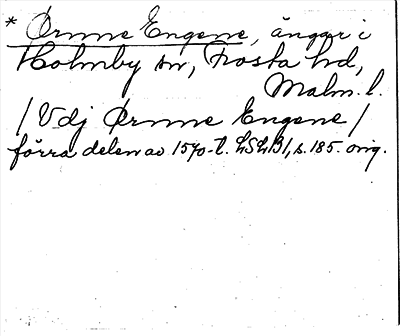 * Ørmme Engene, ängar i
Holmby sn, Frosta hd,
Malm. l.
/Vdj Ørmme Engene/
förra delen av 1570-t. LSLB1, s. 185. orig.